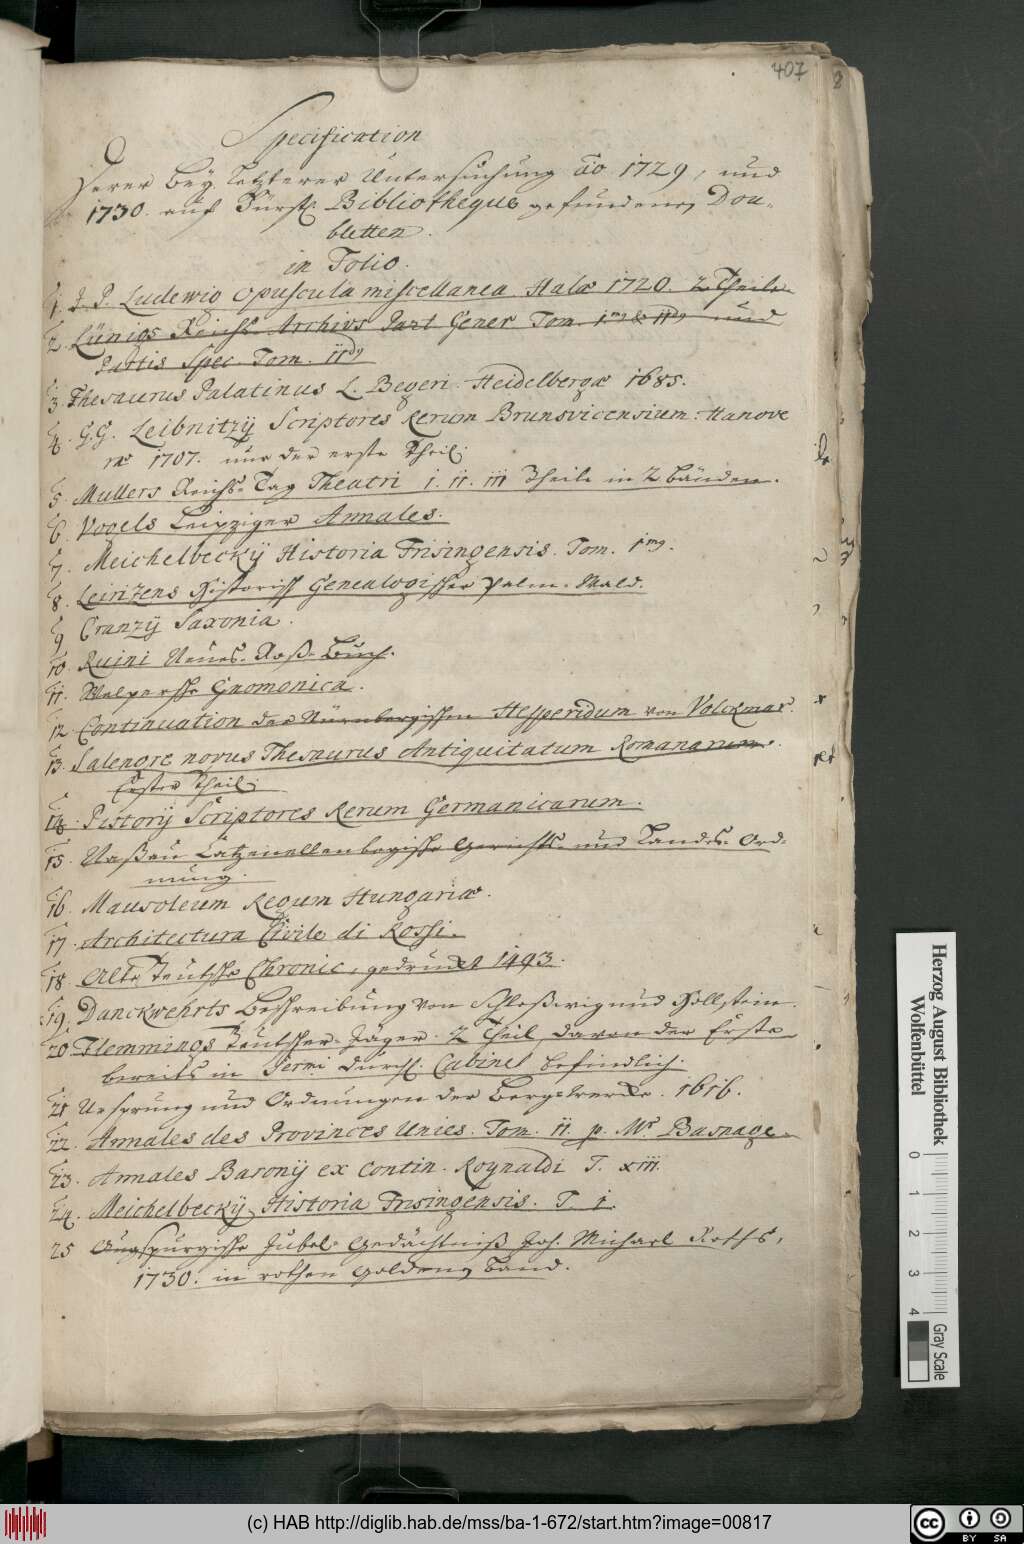 407
8
Specification
Derer bey letzterer Untersuchung ao 1729, und
1730. auf Fürstl. Bibliotheque gefundenen Dou-
bletten.
in Folio.
1. J. P. Ludewig opuscula miscellanea Halæ 1720. 2 Theile.
2. Lünigs Reichs-Archivs Part Gener Tom. 1mg & IIdg und
Partis Spec. Tom. IIdg
3. Thesaurus Palatinus L. Begeri. Heidelbergæ 1685.
4. G. G. Leibnitzÿ Scriptores Rerum Brunsvicensium. Hanove
ræ 1707. nur der erste Theil.
5. Mullers Reichs-Tag Theatri I. II. III Theile in 2 bänden.
6. Vogels Leipziger Annales.
7. Meichelbeckÿ Historia Frisingensis. Tom. 1mg.
8. Historisch Genealogischer Palm-Wald.
9. Cranzÿ Saxonia.
10. Ruini Neues-Roß-Buch.
11. Welpersche Gnomonica.
12. Continuation der Nürnbergischen Hesperidum von Volckmar.
13. Salengre novus Thesaurus Antiquitatum Romanarum.
Erster Theil.
14. Pistorÿ Scriptores Rerum Germanicarum.
15. Naßau Catzenellenbogische Gerichts- und Landes-Ord-
nung.
16. Mausoleum Regum Hungariæ.
17. Architectura Civile di Rossi.
18. Alte Teutsche Chronic, gedruckt 1493.
19. Danckwehrts Beschreibung von Schleßwig und Hollstein.
20. Flemmings Teutscher-Jäger. 2 Theil, davon der Erste
bereits in Sermi Durchl. Cabinet befindlich.
21 Ursprung und Ordnungen der Bergwercke. 1616.
22. Annales des Provinces Unies. Tom. II. p. Mr. Basnage.
23. Annales Baronÿ ex contin. Raynaldi T. XIII.
24. Meichelbeckÿ Historia Frisingensis. T. I.
25 Augspurgische Jubel-Gedächtniß Joh. Michael Roths,
1730. in rothen goldenen Band.
Herzog August Bibliothek
Wolfenbüttel
0 1 2 3 4
Gray Scale
(c) HAB http://diglib.hab.de/mss/ba-1-672/start.htm?image=00817
cc BY SA